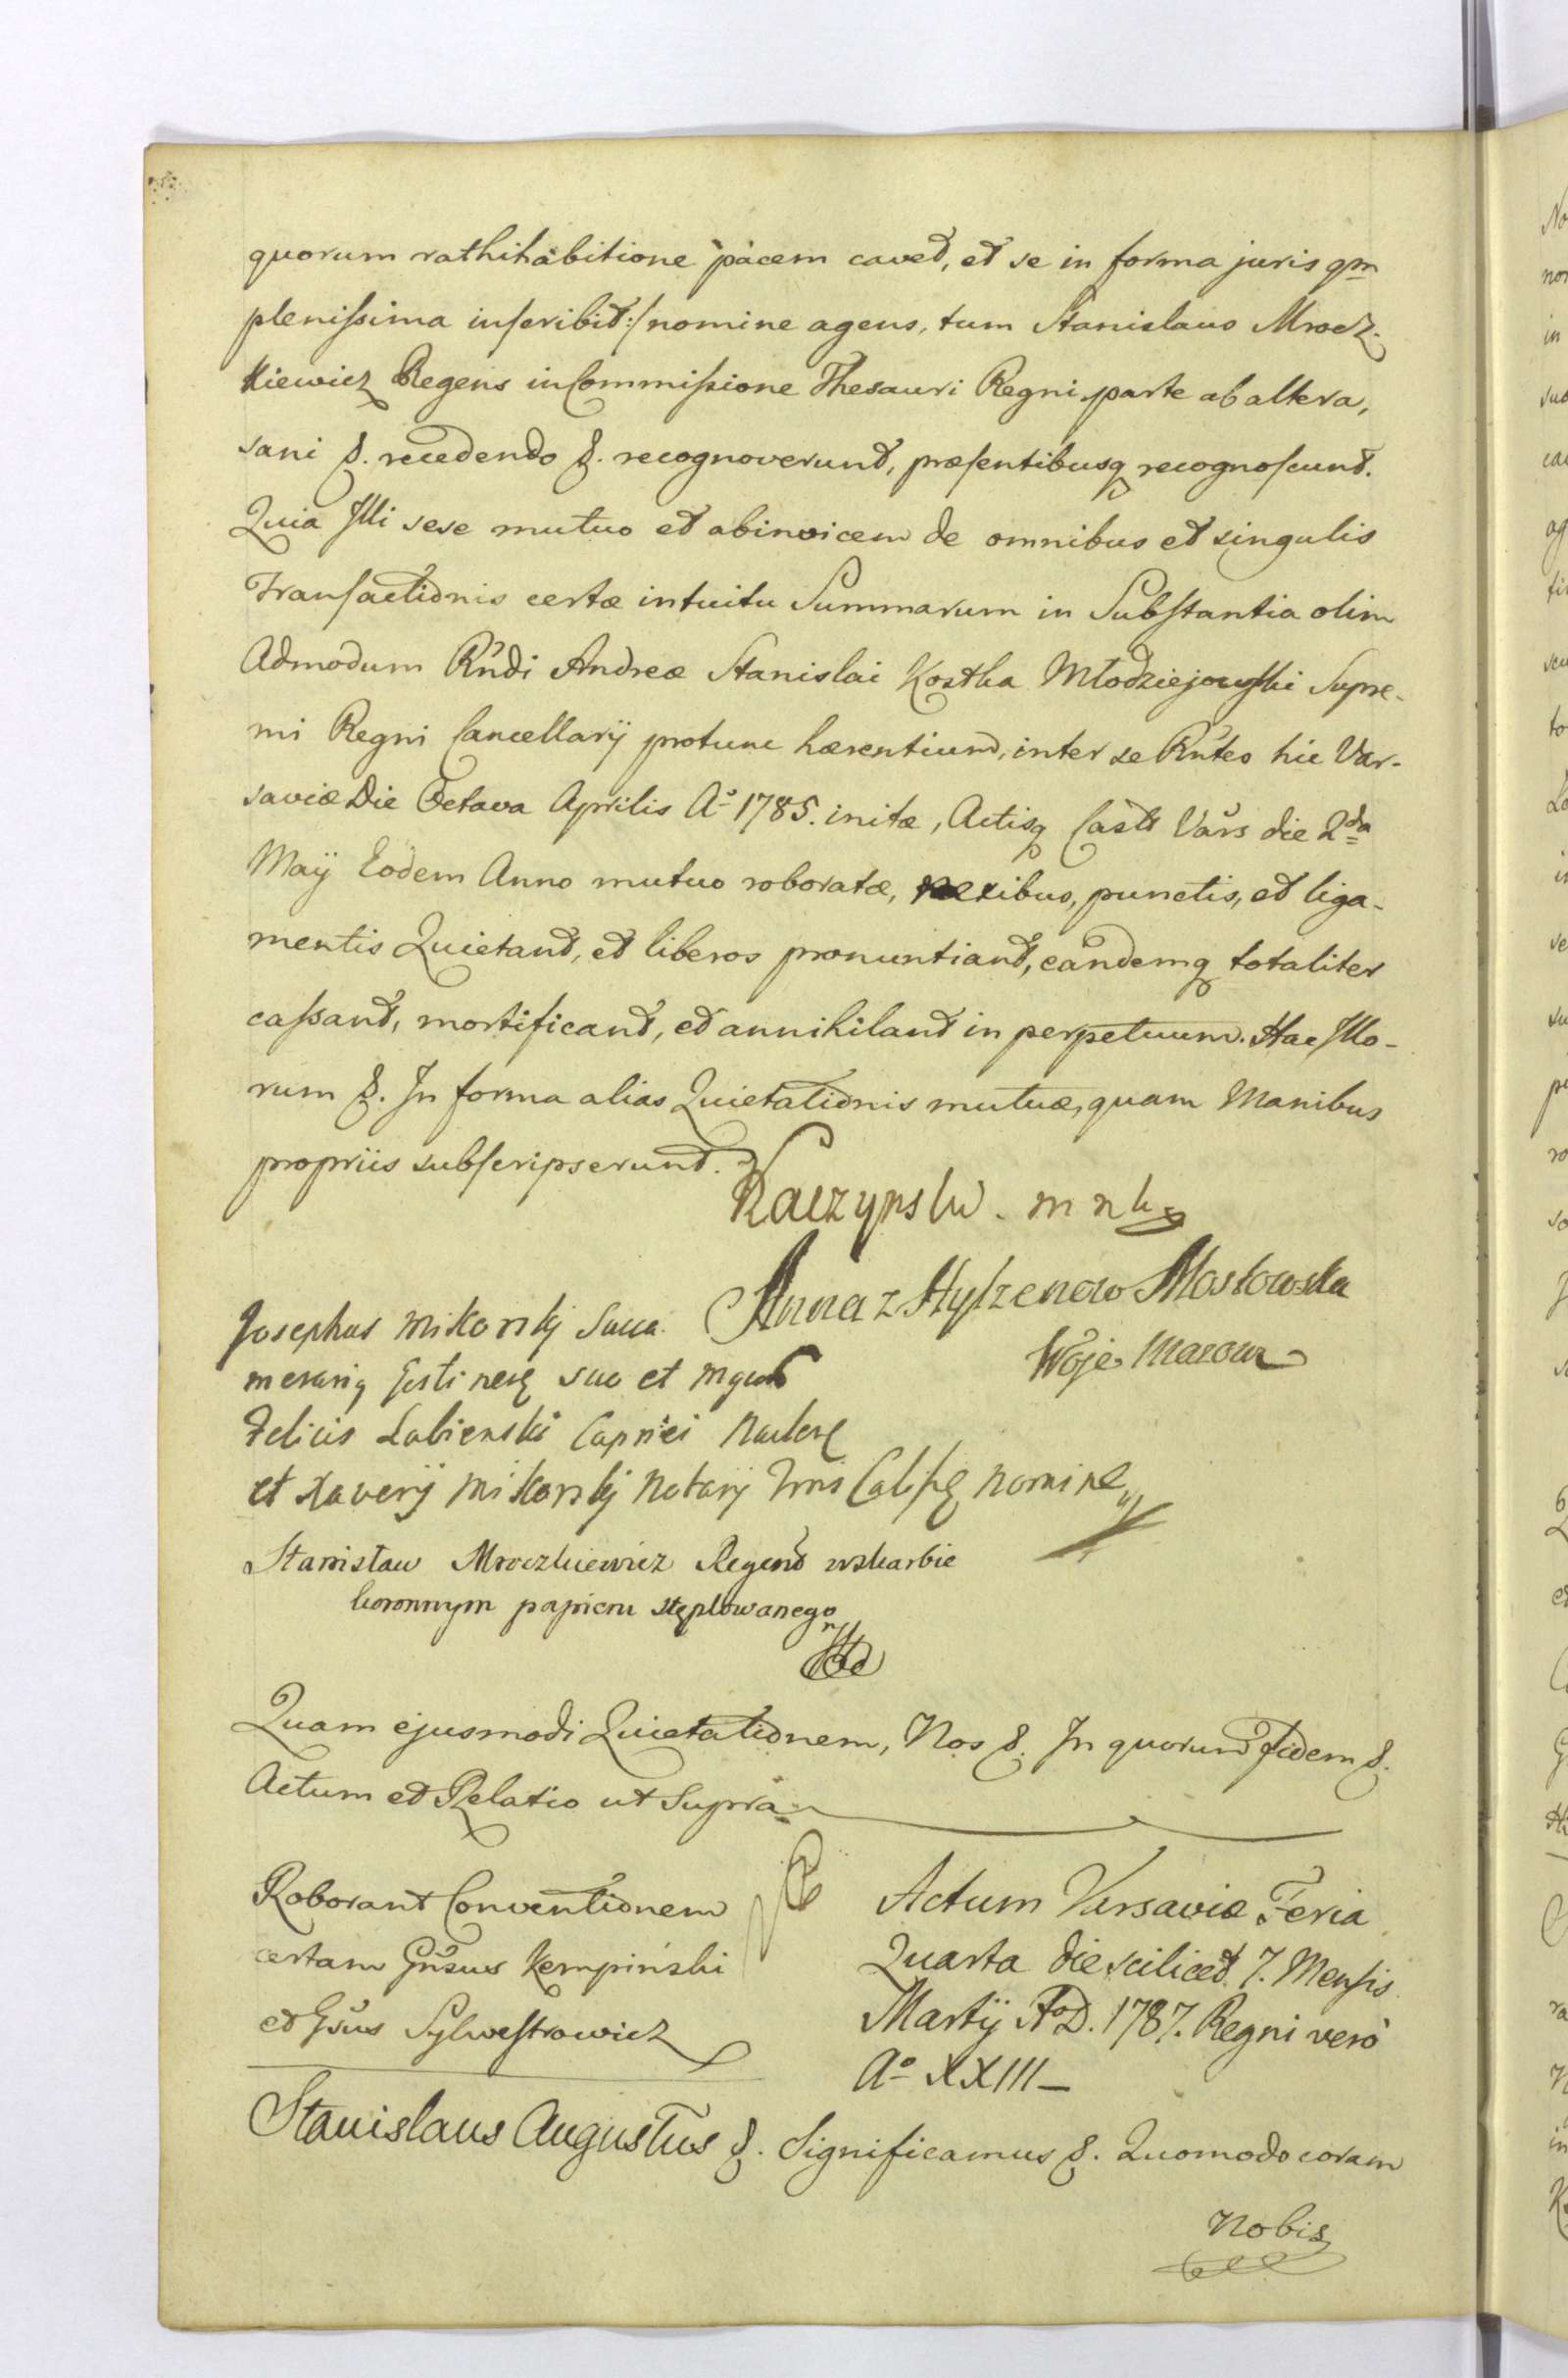 quorum rathihabitione pacem caved, et se in forma juris qm
plenissima inscribit :/ nomine agens, tum Stanislaus Mrocz-
kiewicz Regens in Commissione Thesauri Regni parte ab altera,
sani &. recedendo &. recognoverunt, præsentibusq recognoscunt.
Quia Illi sese mutuo et abinvicem de omnibus et singulis
Transactionis certæ intuitu Summarum in Substantia olim
Admodum Rndi Andreæ Stanislai Kostka Młodziejowski Supre-
mi Regni Cancellarij protunc hærentium, inter se Rntes hic Var-
saviæ Die Octava Aprilis Aº 1785. initæ, Actisq Castr Vars die 2da
Maij Eodem Anno mutuo roboratæ, nexibus, punctis, et liga-
mentis Quietant, et liberos pronuntiant, eandemq totaliter
cassant, mortificant, et annihilant in perpetuum. Hac Illo-
rum &. In forma alias Quietationis mutuæ, quam Manibus
propriis subscripserunt.
Kaczynski. m
Anna z Hylzenow Mostowska
Woje Mazow
Josephus Mikorskj Succa
merarig Gostinesę suo et
Felicis Łubienski Capnei
et Xaverij Mikorskj Notarij Calisę nomine
Stanisław Mroczkiewicz Regent w skarbie
koronnym papieru stęplowanego
Quam ejusmodi Quietationem, Nos &. In quorum Fidem &.
Actum et Relatio ut Supra
Roborant Conventionem
certam Gnsus Kempiński
et Gsus Sylwestrowicz
Actum Varsaviæ Feria
Quarta die scilicet 7. Mensis
Martij AoD. 1787. Regni verò
Aº XXIII
Stanislaus Augustus &. Significamus &. Quomodo coram
Nobis